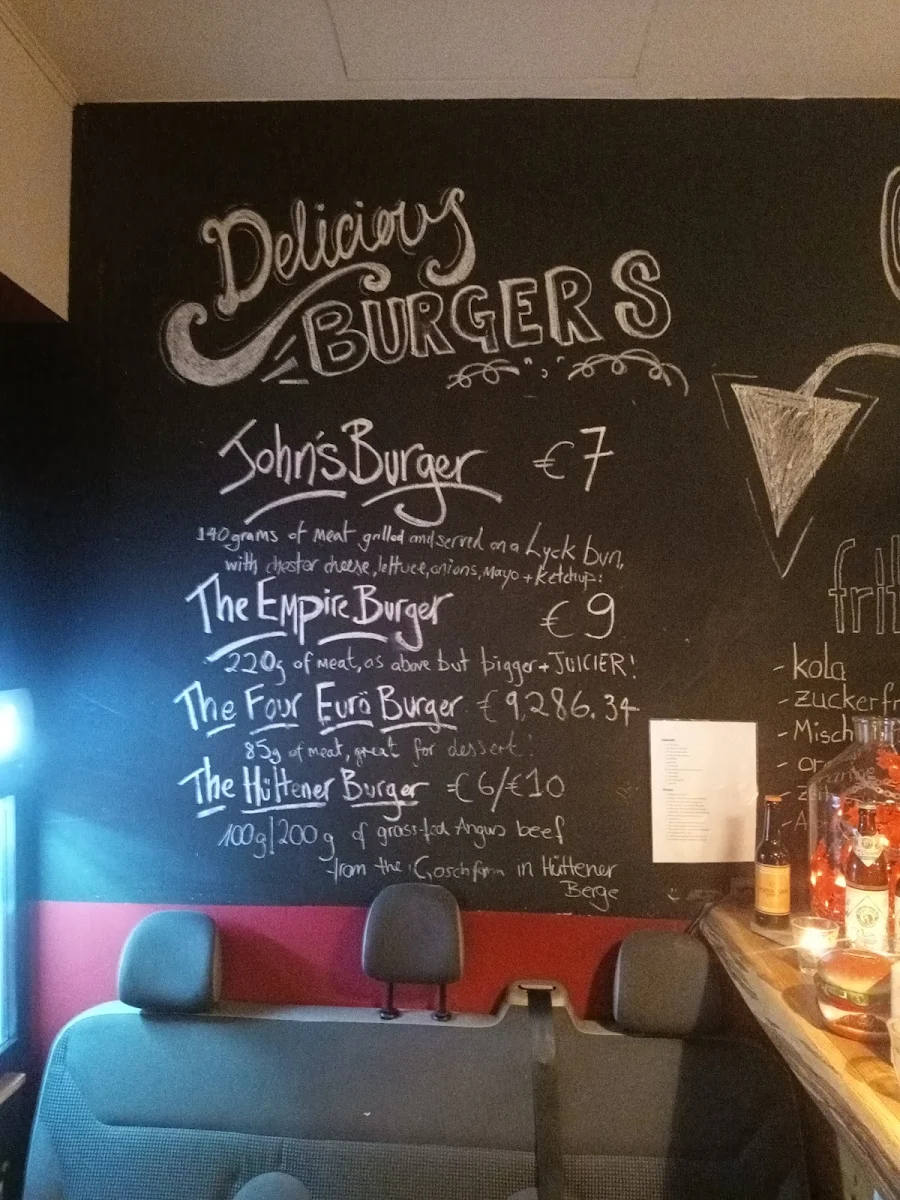 Delicious
BURGERS
John's Burger €7
140grams of meat grilled and served on a Lyck bun,
with chester cheese, lettuce, onions, Mayo + Ketchup.
The Empire Burger €9
220g of meat, as above but bigger + JUICIER!
The Four Euro Burger €9,286.34
85g of meat, great for dessert!
The Hüttener Burger €6/€10
100g/200g of grass-fed Angus beef
from the in Hüttener
Berge
frit
- kola
- zuckerfr
- Misch